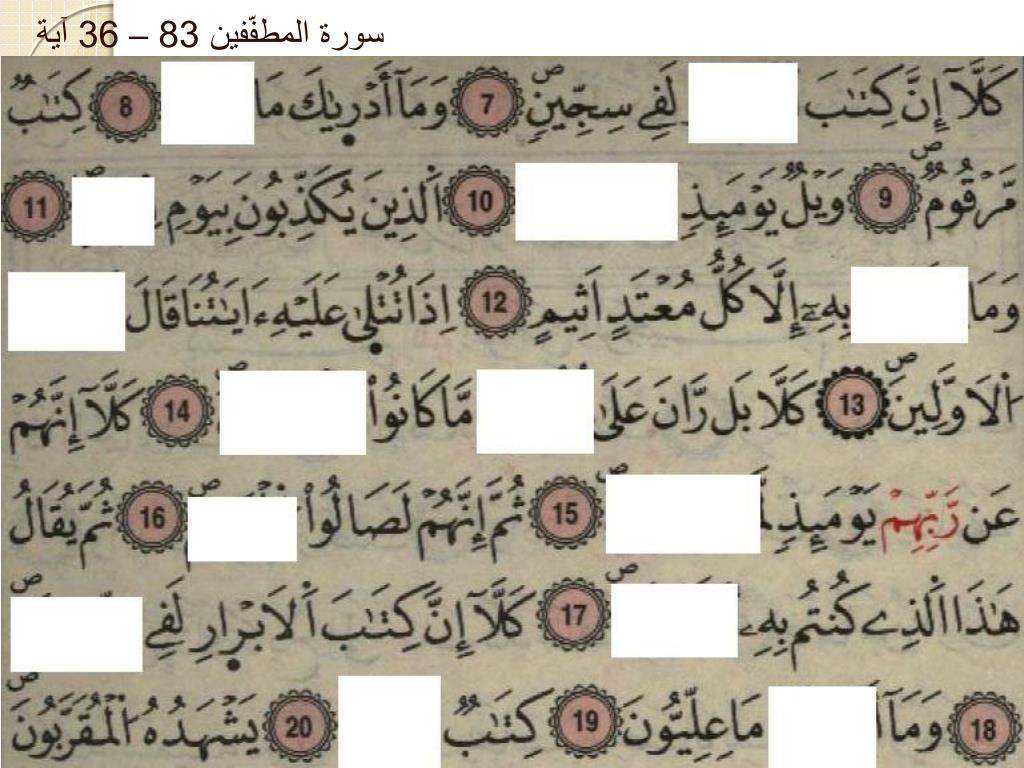 سورة المطفّفين 83 – 36 آية
كَلَّآ إِنَّ كِتَٰبَ لَفِے سِجِّينٖۖ 7 وَمَآ أَدْر۪يٰكَ مَا 8 كِتَٰبٞ
مَّرْقُومٞۖ 9 وَيْلٞ يَوْمَئِذٖ 10 اِ۬لذِينَ يُكَذِّبُونَ بِيَوْمِ 11
وَمَا بِهِۦٓ إِلَّا كُلُّ مُعْتَدٍ اَثِيمٍ 12 اِذَا تُتْل۪يٰ عَلَيْهِ ءَايَٰتُنَا قَالَ
اُ۬لَاوَّلِينَۖ 13 كَلَّا بَل رَّانَ عَلَىٰ مَّا كَانُواْ 14 كَلَّآ إِنَّهُمْ
عَن رَّبِّهِمْ يَوْمَئِذٖ 15 ثُمَّ إِنَّهُمْ لَصَالُواْ 16 ثُمَّ يُقَالُ
هَٰذَا اَ۬لذِے كُنتُم بِهِۦ 17 كَلَّآ إِنَّ كِتَٰبَ اَ۬لَابْر۪ارِ لَفِے
18 وَمَآ مَا عِلِّيُّونَ 19 كِتَٰبٞ 20 يَشْهَدُهُ اُ۬لْمُقَرَّبُونَۖ